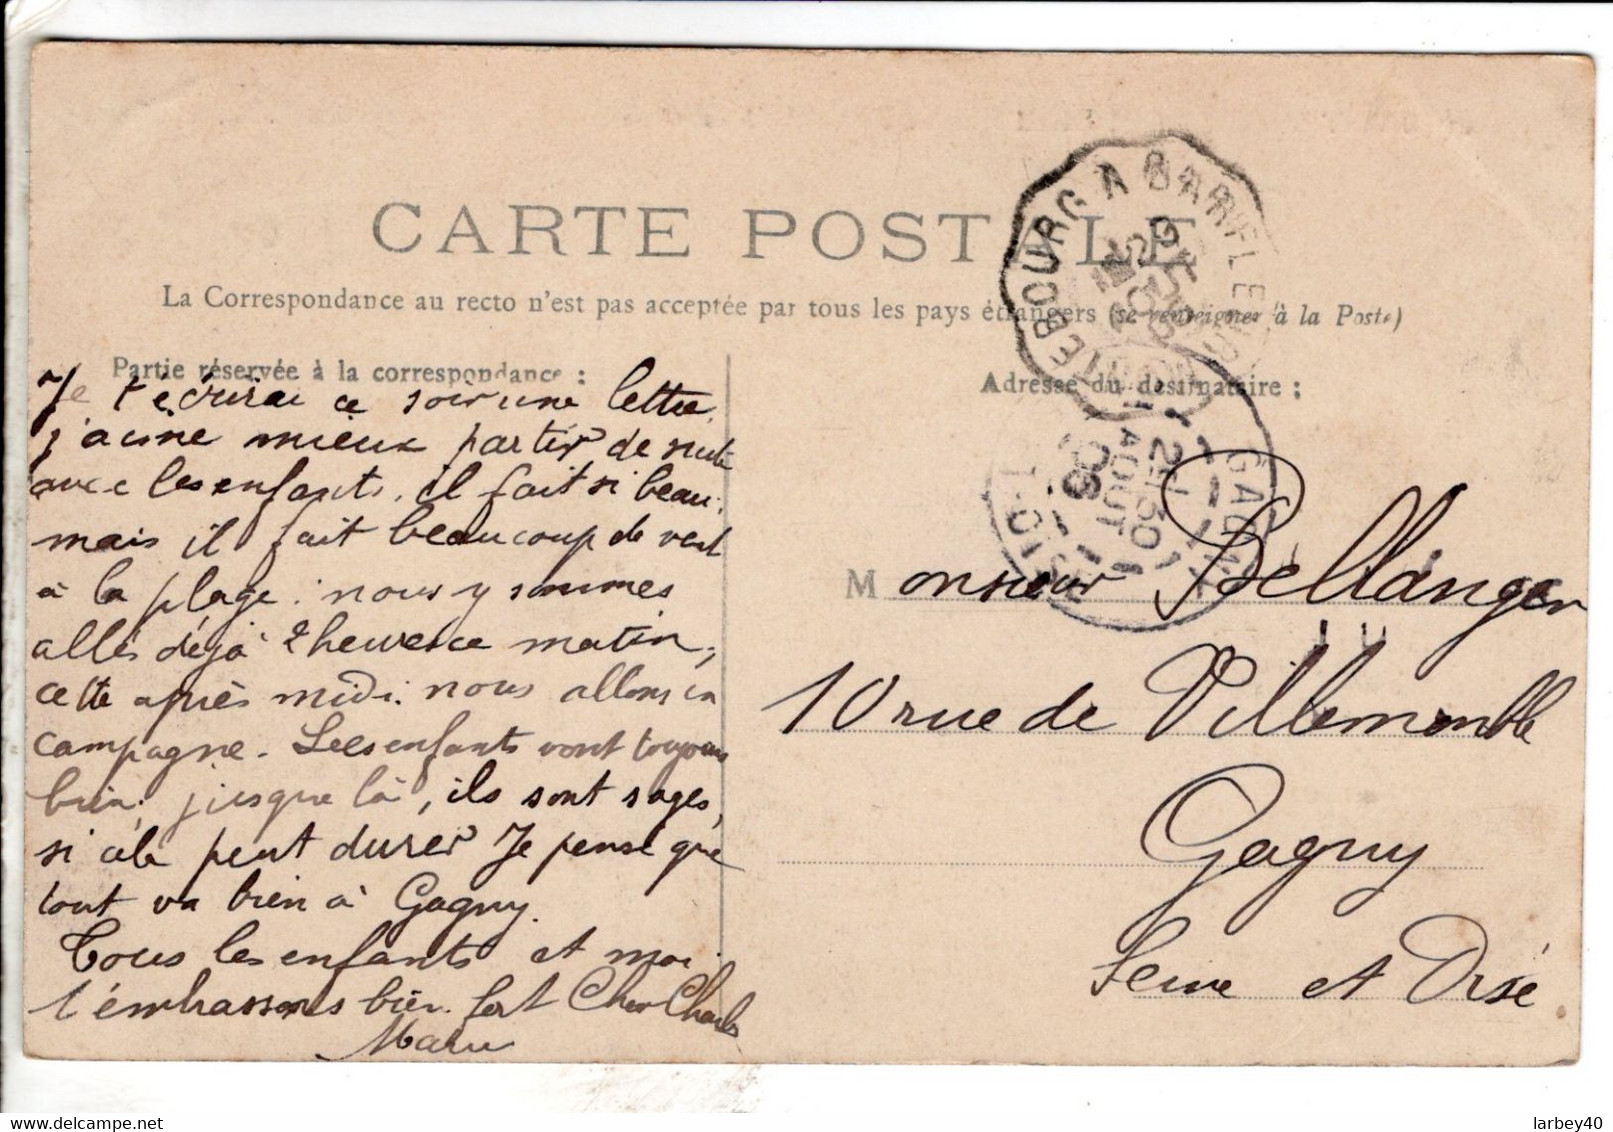 CARTE POSTALE
La Correspondance au recto n'est pas acceptée par tous les pays étrangers (se renseigner à la Poste)
Partie réservée à la correspondance :
Adresse du destinataire :
Je t'écrirai ce soir une lettre,
j'aime mieux partir de suite
avec les enfants. il fait si beau,
mais il fait beaucoup de vent
à la plage : nous y sommes
allés déjà 2 heures ce matin,
cette après midi nous allons en
campagne. Les enfants vont toujours
bien, jusque là, ils sont sages,
si cela peut durer Je pense que
tout va bien à Gagny.
Tous les enfants et moi
t'embrassons bien fort Cher Charles
Monsieur Bellanger
10 rue de Villemomble
Gagny
Seine et Oise
EBOURG A BARFLE
GAGNY
2E
AOUT
08
larbey40